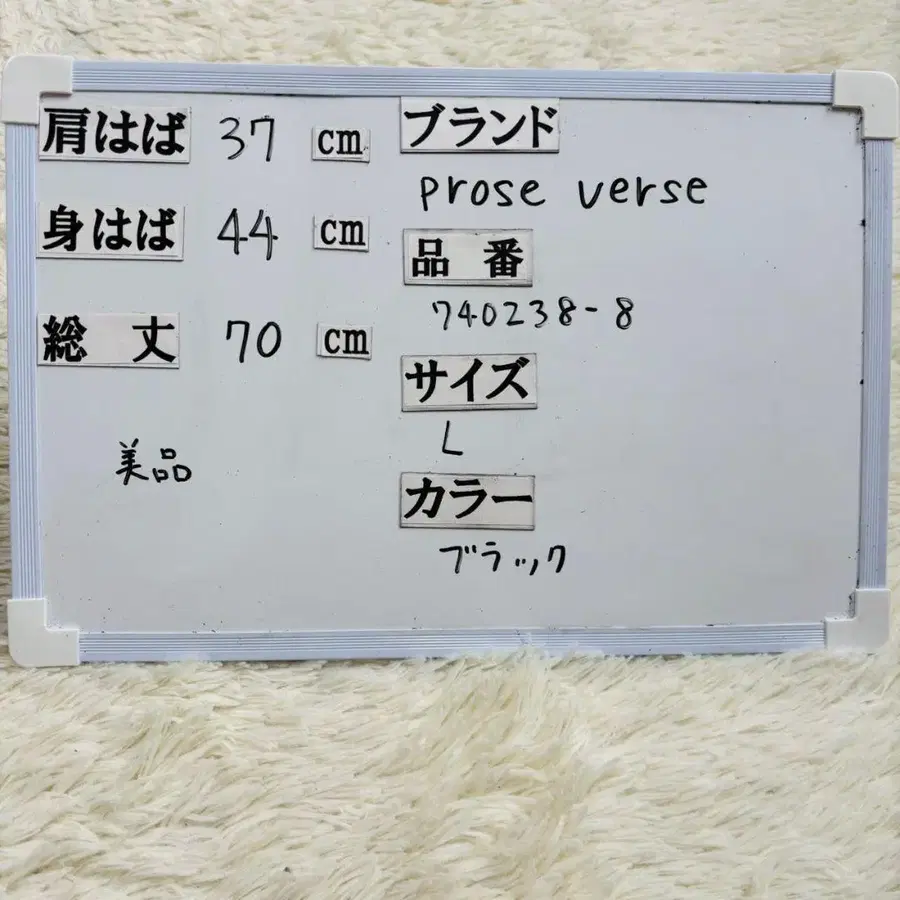 肩はば 37 cm
身はば 44 cm
総丈 70 cm
美品
ブランド
prose verse
品番
740238-8
サイズ
L
カラー
ブラック